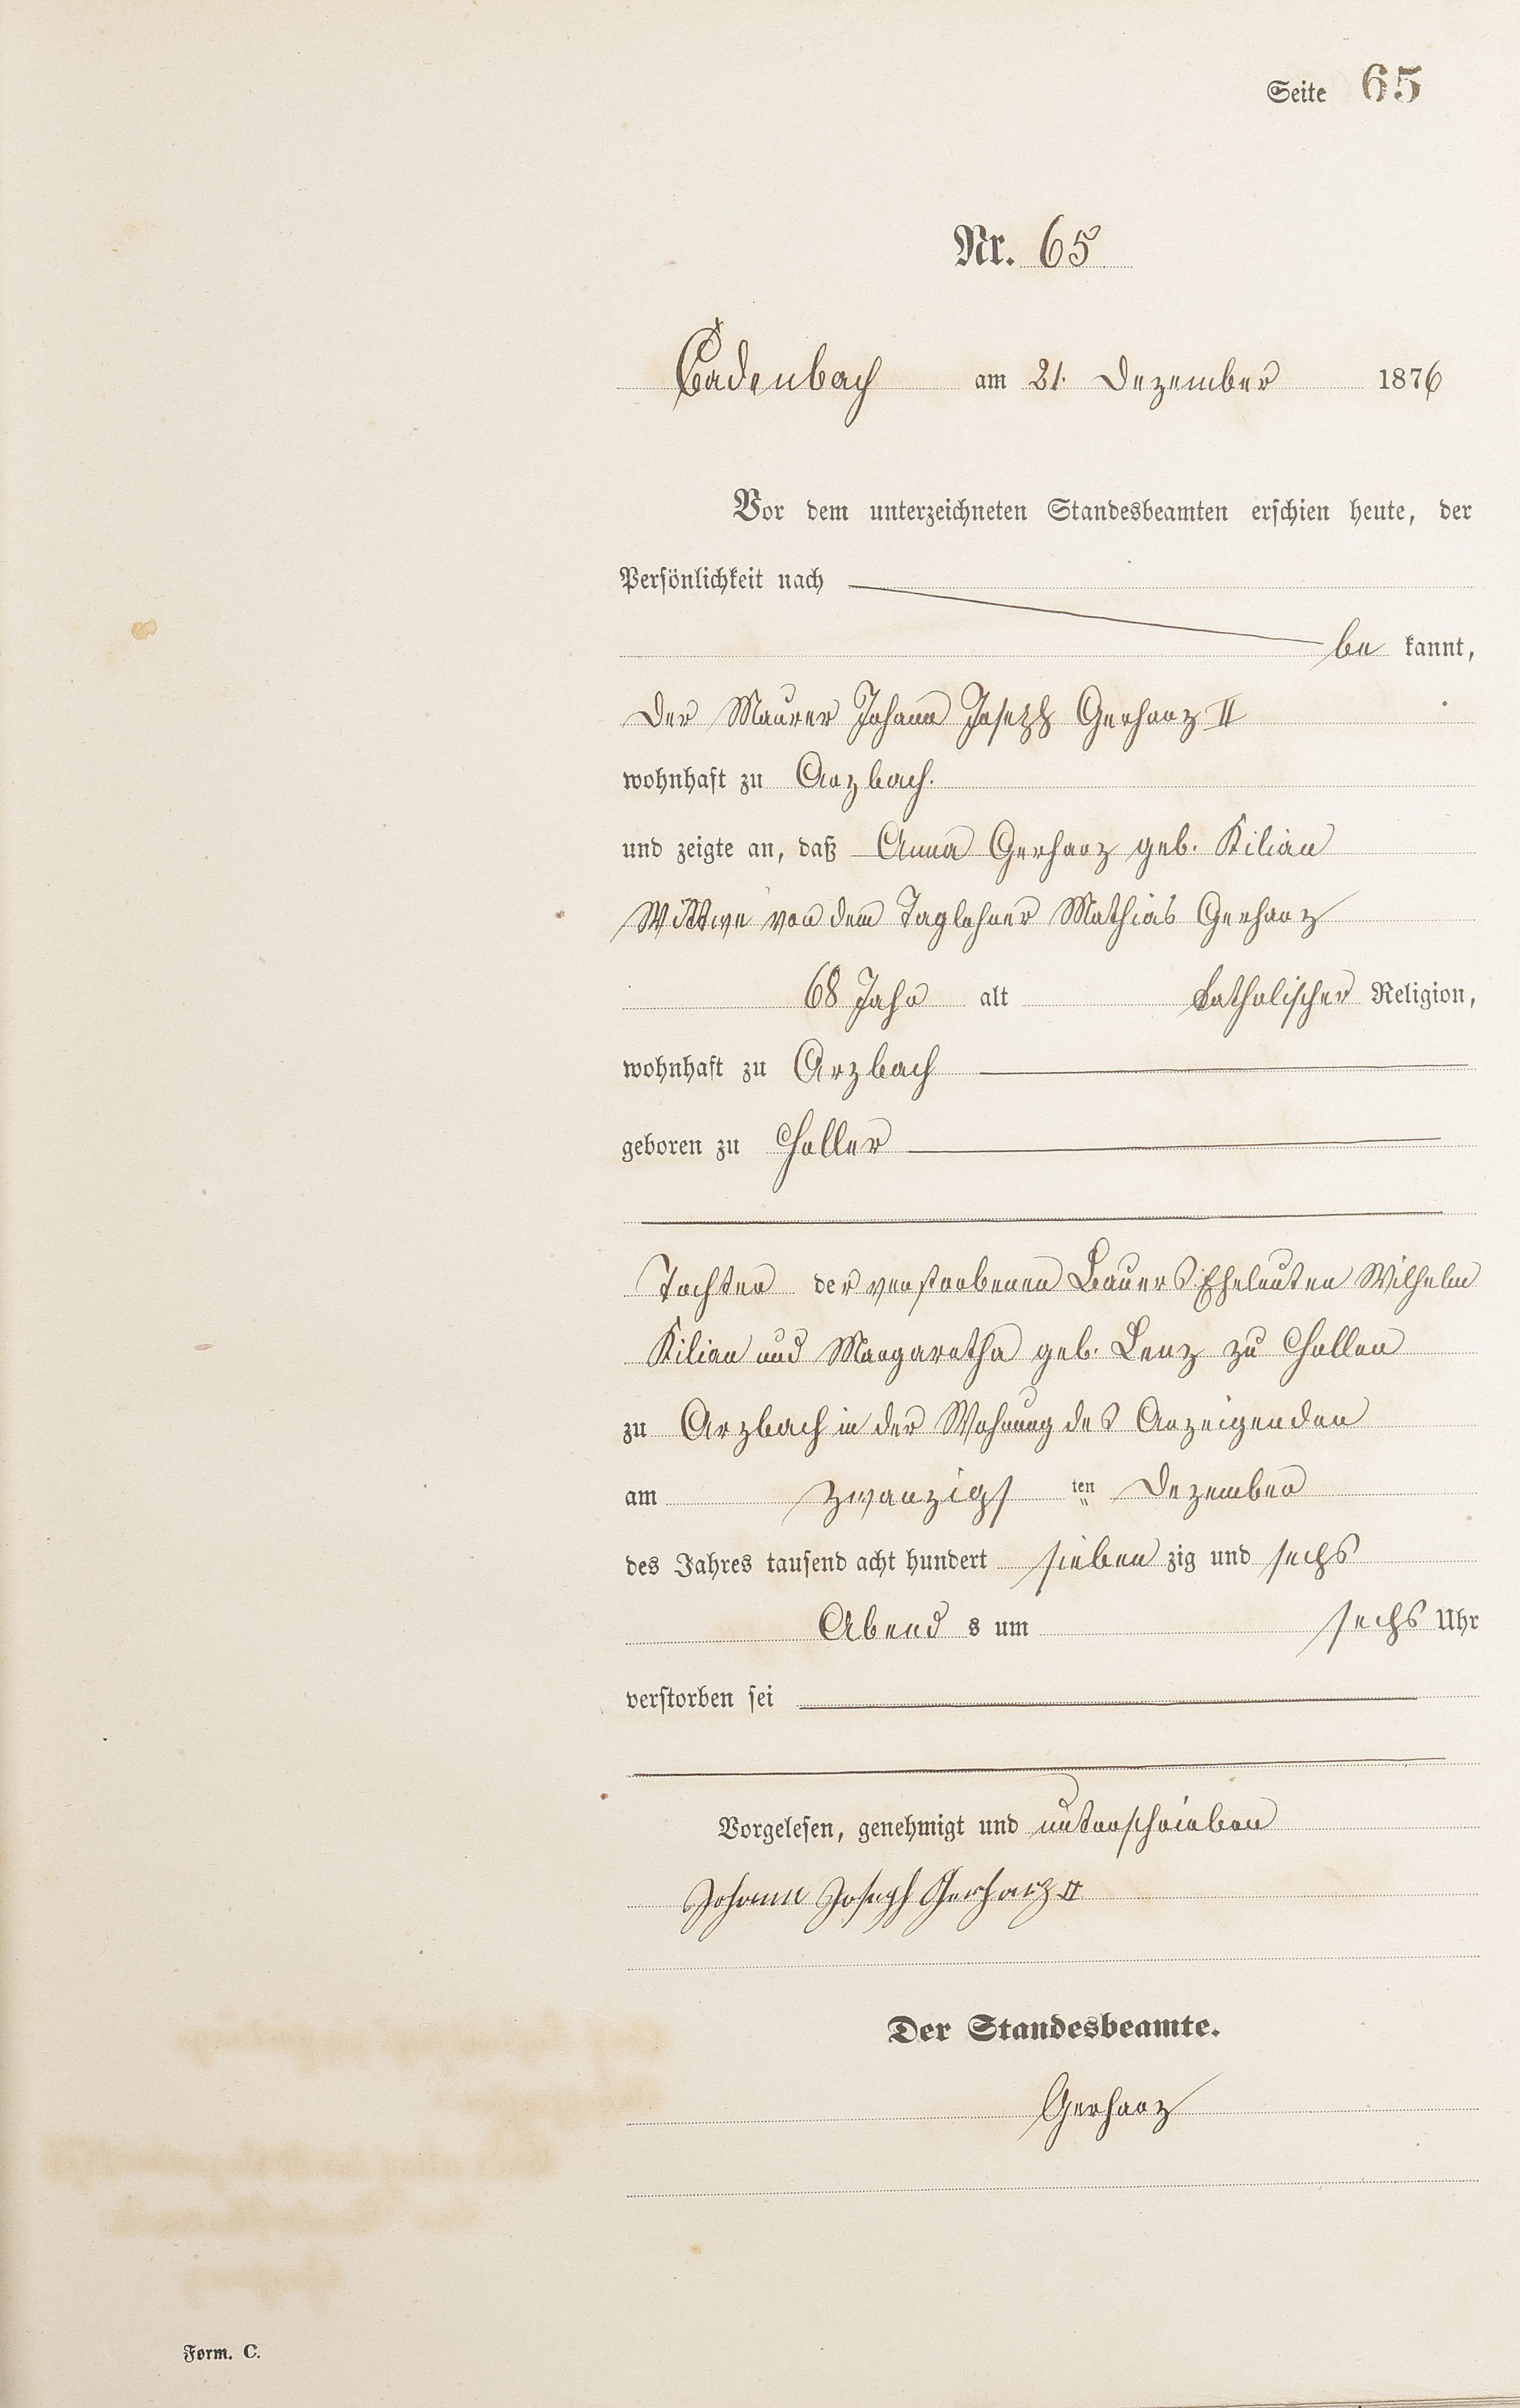 Seite 65
Nr. 65
Cadenbach am 21. Dezember 1876
Vor dem unterzeichneten Standesbeamten erschien heute, der
Persönlichkeit nach
be kannt,
der Maurer Johann Joseph Gerharz II
wohnhaft zu Arzbach.
und zeigte an, daß Anna Gerharz geb. Kilian
Wittwe von dem Taglohner Mathias Gerharz
68 Jahr alt katholischer Religion,
wohnhaft zu Arzbach
geboren zu Holler
Tochter der verstorbenen Bauers Eheleuten Wilhelm
Kilian und Margaretha geb. Lenz zu Holler
zu Arzbach in der Wohnung des Anzeigenden
am zwanzigs ten Dezember
des Jahres tausend acht hundert sieben zig und sechs
Abend s um sechs Uhr
verstorben sei
Vorgelesen, genehmigt und unterschrieben
Johann Joseph Gerharz II
Der Standesbeamte.
Gerharz
Form. C.